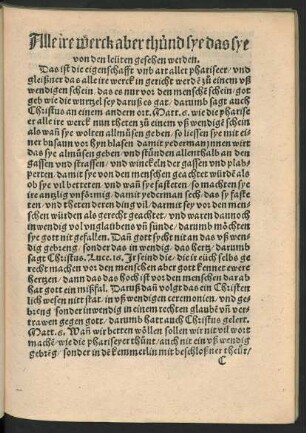 Alle ire werck aber thünd sye das sye
von den leüten gesehen werden.
Das ist die eigenschafft vnd art aller phariseer vnd
gleißner das alle ire werck in gericht werdē zů einem vß
wendigen schein, das es nur vor den menschē schein, got
geb wie die wurtzel sey daruß es gat, darumb sagt auch
Christus an einem andern ort. Matt. 6. wie die pharise
er alle ire werck nun theten zů einem vß wendigē schein
als wan sye wolten allmůsen geben, so liessen sye mit ei
ner busaun vor hyn blasen damit yederman innen wirt
das sye almůsen geben, vnd stůnden allenthalb an den
gassen vnd strassen, vnd winckelen der gassen vnd plap
perten, damit sye von den menschen geachtet würdē als
ob sye vil betteten, vnd wañ sye fasteten, so machten sye
ire antzlig vnförmig, damit yederman sech, das sy faste
ten, vnd theten deren ding vil, damit sey vor den men
schen würden als gerecht geachtet, vnd waren dannoch
inwendig vol vnglaubens vñ sünde, darumb möchten
sye got nit gefallen. Dañ got sycht nit an das vß wendi
ge gebreng, sonder das in wendig, das hertz, darumb
sagt Christus. Luce. 16. Ir seind die, die ir euch selbs ge
recht machen vor den menschen aber got kennet ewere
hertzen, dann das das hoch ist vor den menschen dar ab
hat got ein mißfal. Daruß dañ volgt das ein Christen
lich wesen nitt stat, in vß wendigen ceremonien, vnd ge
breng, sonder inwendig in einem rechten glaubē vñ ver
trawen gegen gott, darumb hatt auch Christus gelert.
Matt. 6. Wañ wir betten wöllen sollen wir nit vil wort
machē, wie die phariseyer thünt, auch nit ein vß wendig
gebreg, sonder in dē kemmerlin mit beschloßner theür,
C